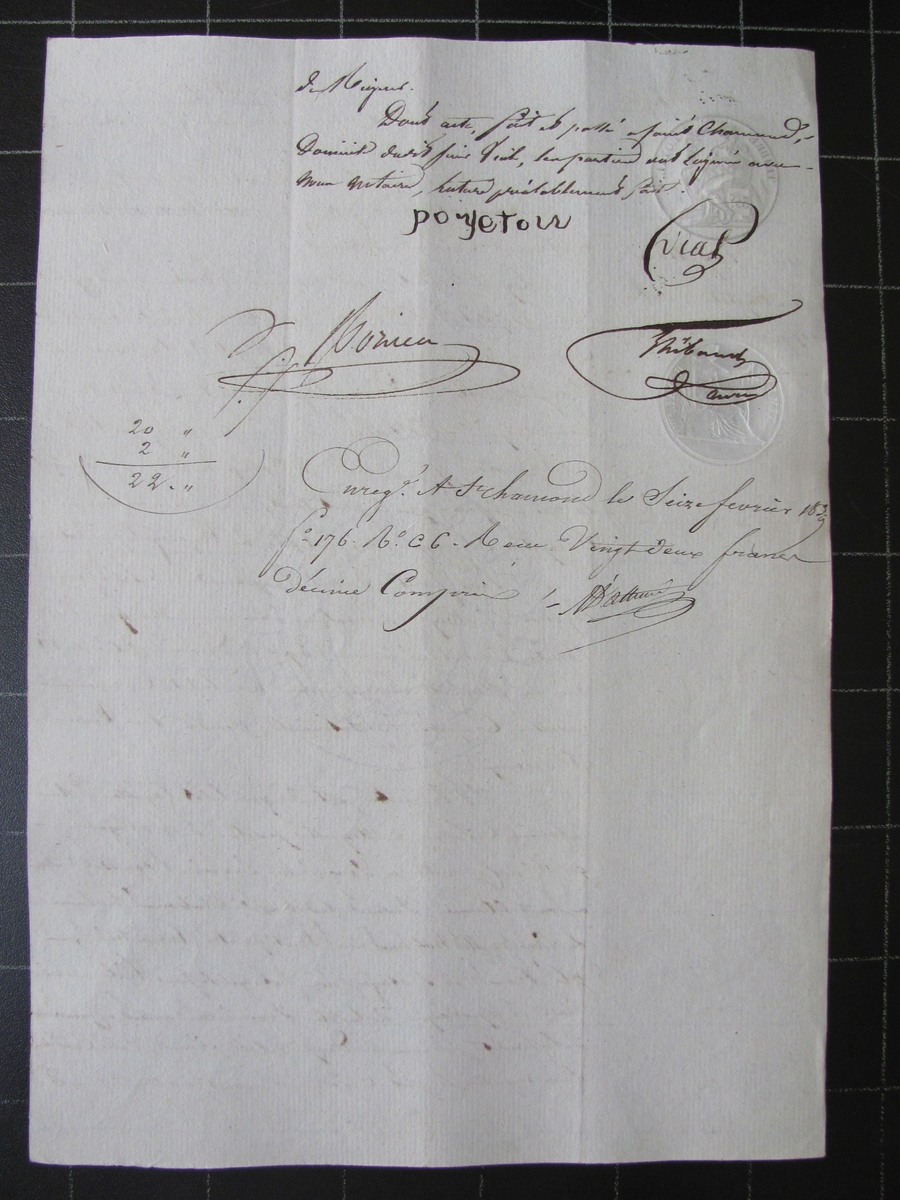 de
Dont acte, fait et passé à Saint Chamond,
Domicile dudit sieur Vial, les parties ont signé avec
nous notaire, lecture préalablement faite.
poyeton
Vial
Thibaud
20 "
2 "
22. "
Enreg.t A St chamond le Seize fevrier 183
f.o 176. R.o C 6. Reçu Vingt deux francs
décime Compris